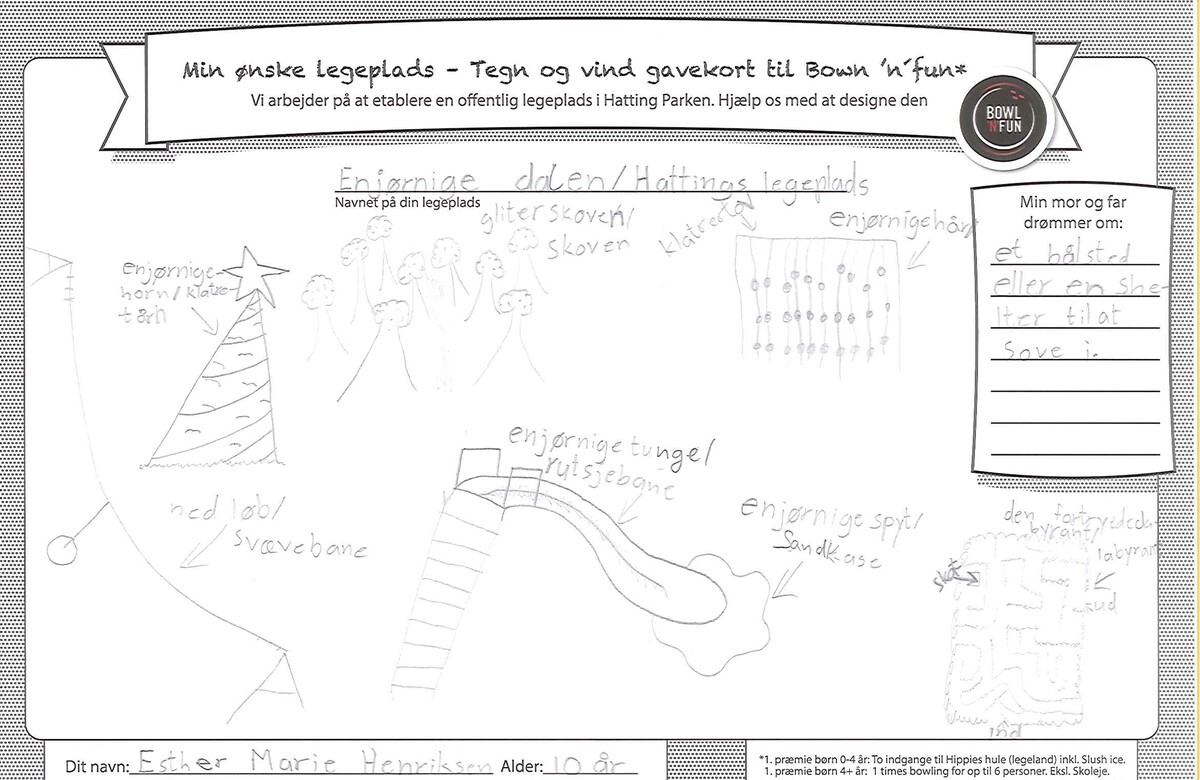 Min ønske legeplads - Tegn og vind gavekort til Bown 'n'fun*
Vi arbejder på at etablere en offentlig legeplads i Hatting Parken. Hjælp os med at designe den
BOWL
'N'FUN
Enjørnige dalen/Hattings legeplads
Navnet på din legeplads
gliterskoven/
skoven
klatretov
enjørnigehår/
enjørnige-
horn/klatre-
tårn
Min mor og far
drømmer om:
et bålsted
eller en she-
lter til at
sove i.
enjørnige tunge/
rutsjebane
ned løb/
svævebane
enjørnige spyt/
Sandkase
den
labyrant
ud
ind
Dit navn: Esther Marie Henriksen Alder: 10 år
*1. præmie børn 0-4 år: To indgange til Hippies hule (legeland) inkl. Slush ice.
1. præmie børn 4+ år: 1 times bowling for op til 6 personer. Eksl. Skoleje.